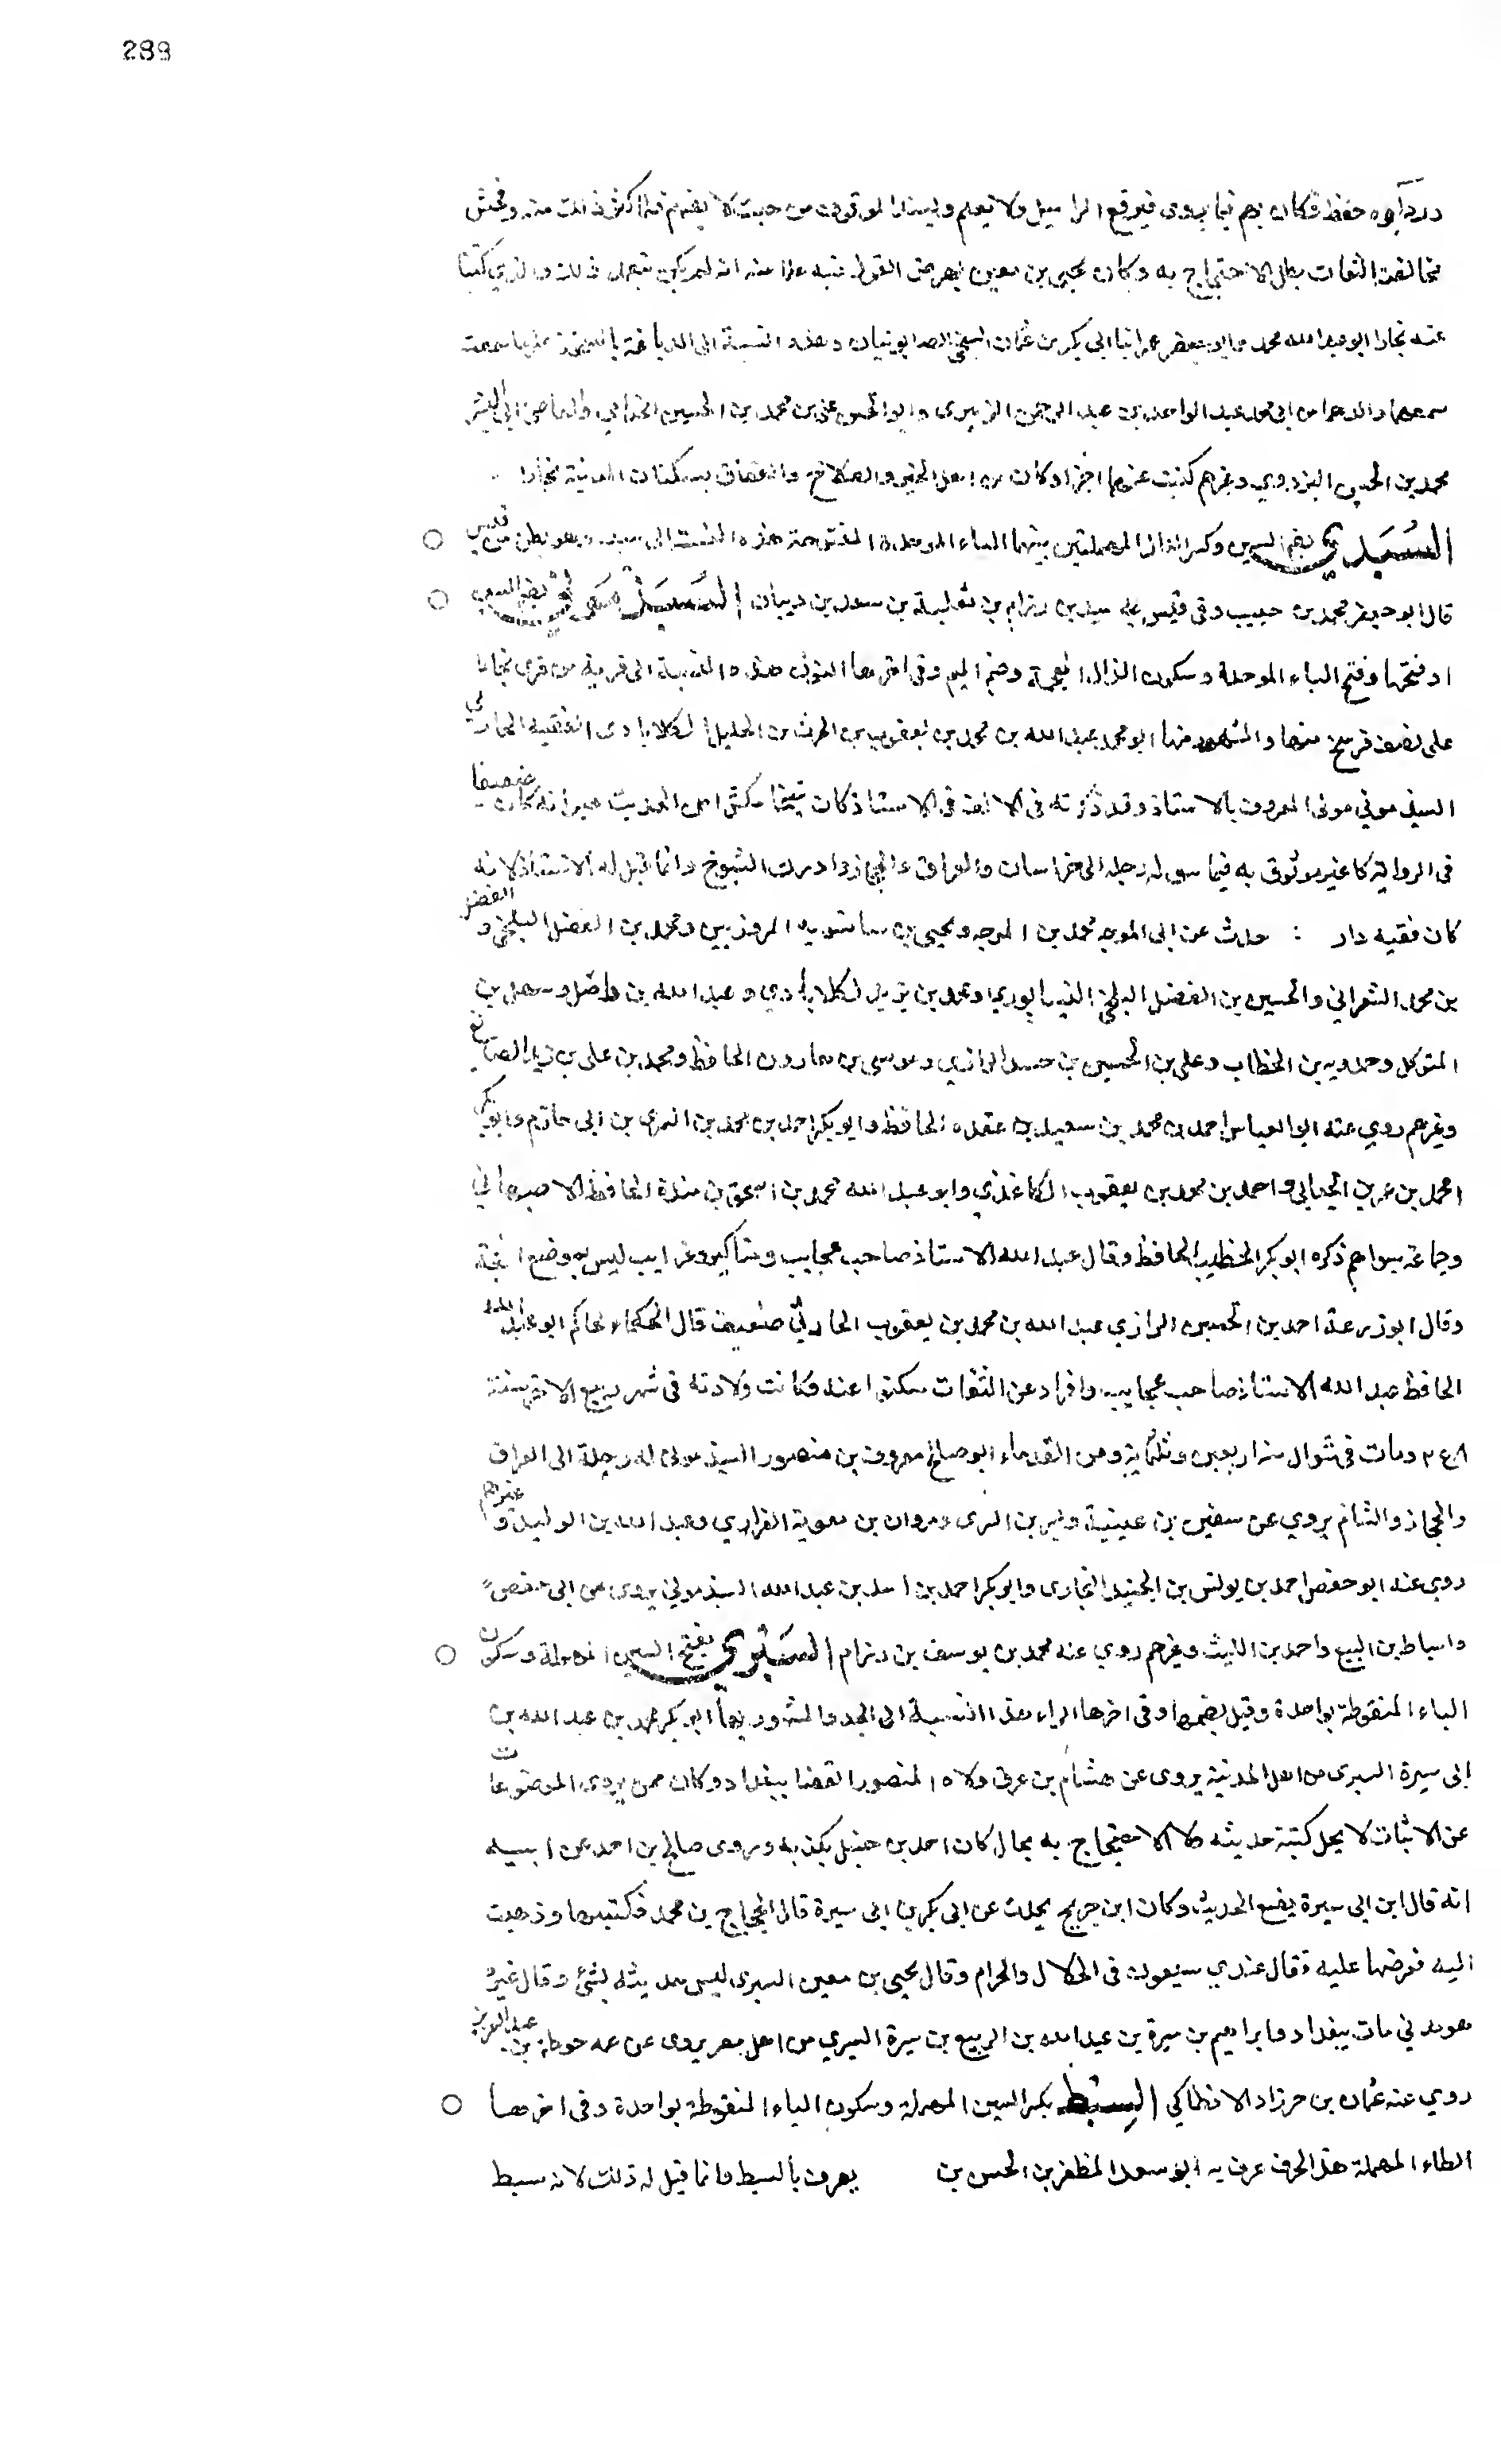 288
ورداءة حفظ فكان يهم فيما يروى فيرفع المراسيل ولا يعلم ويسند الموقوف من حيث لا يفهم فلما كثر ذلك منه وفحش
مخالفته الثقات بطل الاحتجاج به وكان يحيى بن معين يمرض القول فيه علما منه انه لم يكن يتعمد ذلك والذي كتبنا
عنه بخارا ابو عبد الله محمد وابو جعفر عمر ابنا ابى بكر بن عثمان السبخي الصابونيان وهذه النسبة الى الدباغة بالسبخة سمعت
سمعهما والدهما من ابى محمد عبد الواحد بن عبد الرحمن الزبيرى وابو الحسن على بن محمد بن الحسين الخذامي والقاضى ابى اليسر
محمد بن الحسين البزدوي وغيرهم كتبت عنهما اجزا وكانا من اهل الخير والصلاح والعفاف يسكنان المدينة بخارا
السبدي بضم السين وكسر الدال المهملتين بينهما الباء الموحدة المفتوحة هذه النسبة الى سبد وهو بطن من قيس
قال ابو جعفر محمد بن حبيب وفى قيس سبد بن رزام بن ثعلبة بن سعد بن ذبيان السبذموني بضم السين
او فتحها وفتح الباء الموحدة وسكون الذال المعجمة وضم الميم وفى اخرها النون هذه النسبة الى قرية من قرى بخارا
على نصف فرسخ منها والمشهور منها ابو محمد عبد الله بن محمد بن يعقوب بن الحرث بن الخليل الكلاباذى الفقيه الحارثي
السبذموني المعروف بالاستاذ وقد ذكرته فى الالف فى الاستاذ كان شيخا مكثرا من الحديث غير انه كان ضعيفا
فى الرواية كا غير موثوق به فيما ينقله رحل الى خراسان والعراق والحجاز وادرك الشيوخ وانما قيل له الاستاذ لانه
كان فقيه دار : حدث عن ابى الموجه محمد بن الموجه ويحيى بن ساسويه المروزيين ومحمد بن الفضل البلخي و الفضل
بن محمد الشعراني والحسين بن الفضل البلخي النيسابوري ومحمد بن يزيد الكلاباذي وعبد الله بن واصل وسهل بن
المتوكل وحمدويه بن الخطاب وعلى بن الحسين بن جنيد الرازي وموسى بن هارون الحافظ ومحمد بن على بن زيد الصايغ
وغيرهم روي عنه ابو العباس احمد بن محمد بن سعيد بن عقده الحافظ وابو بكر احمد بن محمد بن السرى بن ابى حازم وابو بكر
محمد بن عمر بن الجعابي واحمد بن محمد بن يعقوب الكاغذي وابو عبد الله محمد بن اسحق بن مندة الحافظ الاصبهاني
وجماعة سواهم ذكره ابو بكر الخطيب الحافظ وقال عبد الله الاستاذ صاحب عجايب ومناكير وغرايب ليس بموضع الحجة
وقال ابو زرعة احمد بن الحسين الرازي عبد الله بن محمد بن يعقوب الحارثى ضعيف قال الحكماء الحاكم ابو عبد الله
الحافظ عبد الله الاستاذ صاحب عجايب وافراد عن الثقات سكتوا عنه وكانت ولادته فى شهر ربيع الاخر سنة
٢٥٨ ومات فى شوال سنة اربعين وثلثماية ومن القدماء ابو صالح معروف بن منصور السبذمونى له رحلة الى العراق
والحجاز والشام يروي عن سفين بن عيينة وبشر بن السرى ومروان بن معوية الفزاري وعبد الله بن الوليد وغيرهم
روي عنه ابو حفص احمد بن يونس بن الجنيد البخارى وابو بكر احمد بن اسد بن عبد الله السبذموني يروى عن ابى حفص
واسباط بن اليسع واحمد بن الليث وغيرهم روي عنه محمد بن يوسف بن رزام السبري بفتح السين المهملة وسكون
الباء المنقوطة بواحدة وقيل بضمها وفى اخرها الراء هذه النسبة الى الجد والمشهور بها ابو بكر محمد بن عبد الله بن
ابى سبرة السبرى من اهل المدينة يروى عن هشام بن عروة ولاه المنصور القضا ببغداد وكان ممن يروى الموضوعات
عن الاثبات لا يحل كتبة حديثه ولا الاحتجاج به بحال كان احمد بن حنبل يكذبه وروى صالح بن احمد عن ابيه
انه قال ابن ابى سبرة يضع الحديث وكان ابن جريج يحدث عن ابى بكر بن ابى سبرة قال الحجاج بن محمد فكتبها وذهبت
اليه فعرضها عليه فقال عندي سبعون فى الحلال والحرام وقال يحيى بن معين السبرى ليس حديثه بشئ وقال غيره
هو مدني مات ببغداد وابراهيم بن سبرة بن عبد الله بن الربيع بن سبرة السبري من اهل مصر يروى عن عمه حرملة بن عبد العزيز
روي عنه عثمان بن خرزاد الانطاكي السبط بكسر السين المهملة وسكون الباء المنقوطة بواحدة وفى اخرها
الطاء المهملة هذا الحرف عرف به ابو سعد المظفر بن الحسن بن يعرف بالسبط وانما قيل له ذلك لانه سبط